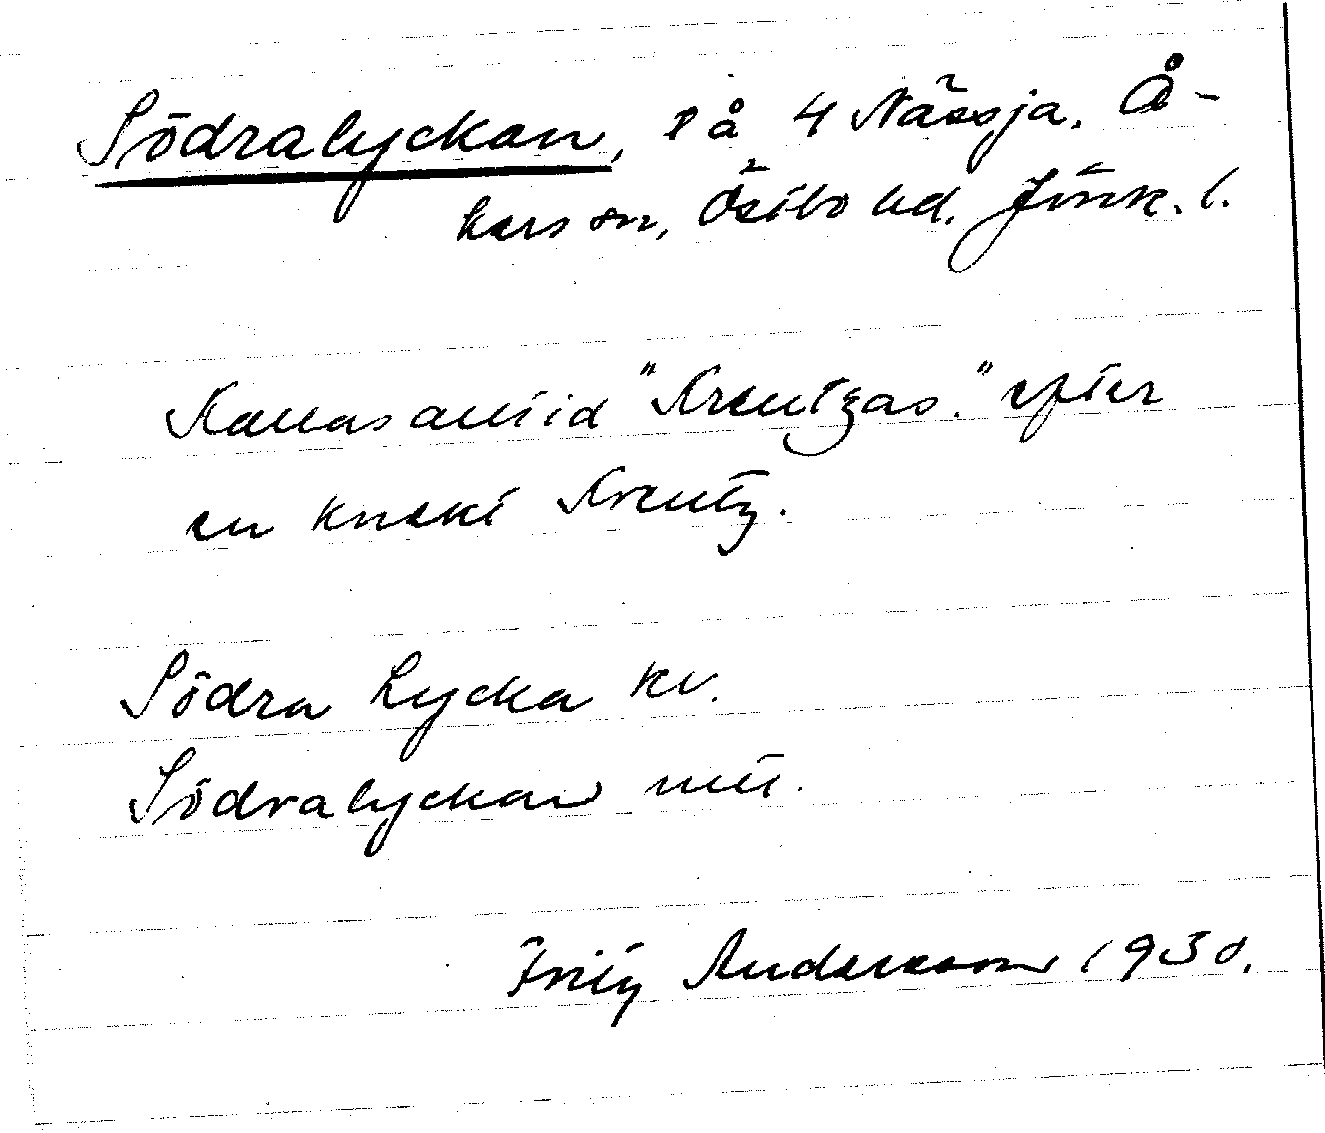 Södralyckan, på 4 Nässja. Å-
kers sn, Östbo hd. Jönk. l.
Kallas alltid "Kreutzas." efter
en knekt Kreutz.
Södra Lycka kv.
Södralyckan
Fritz Andersson 1930.